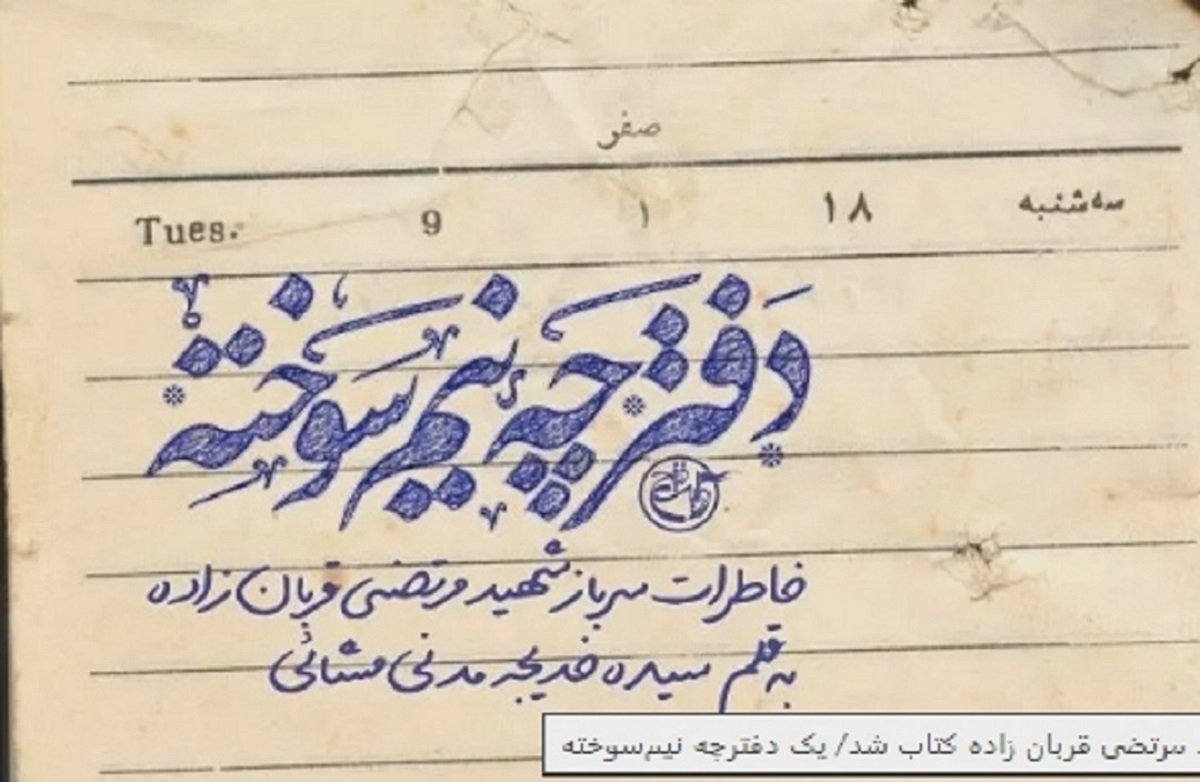 صفر
سه‌شنبه ۱۸ ۱ 9 Tues.
دفترچه نیم‌سوخته
خاطرات سرباز شهید مرتضی قربان زاده
به قلم سیده خدیجه مدنی مشائی
مرتضی قربان زاده کتاب شد/ یک دفترچه نیم‌سوخته